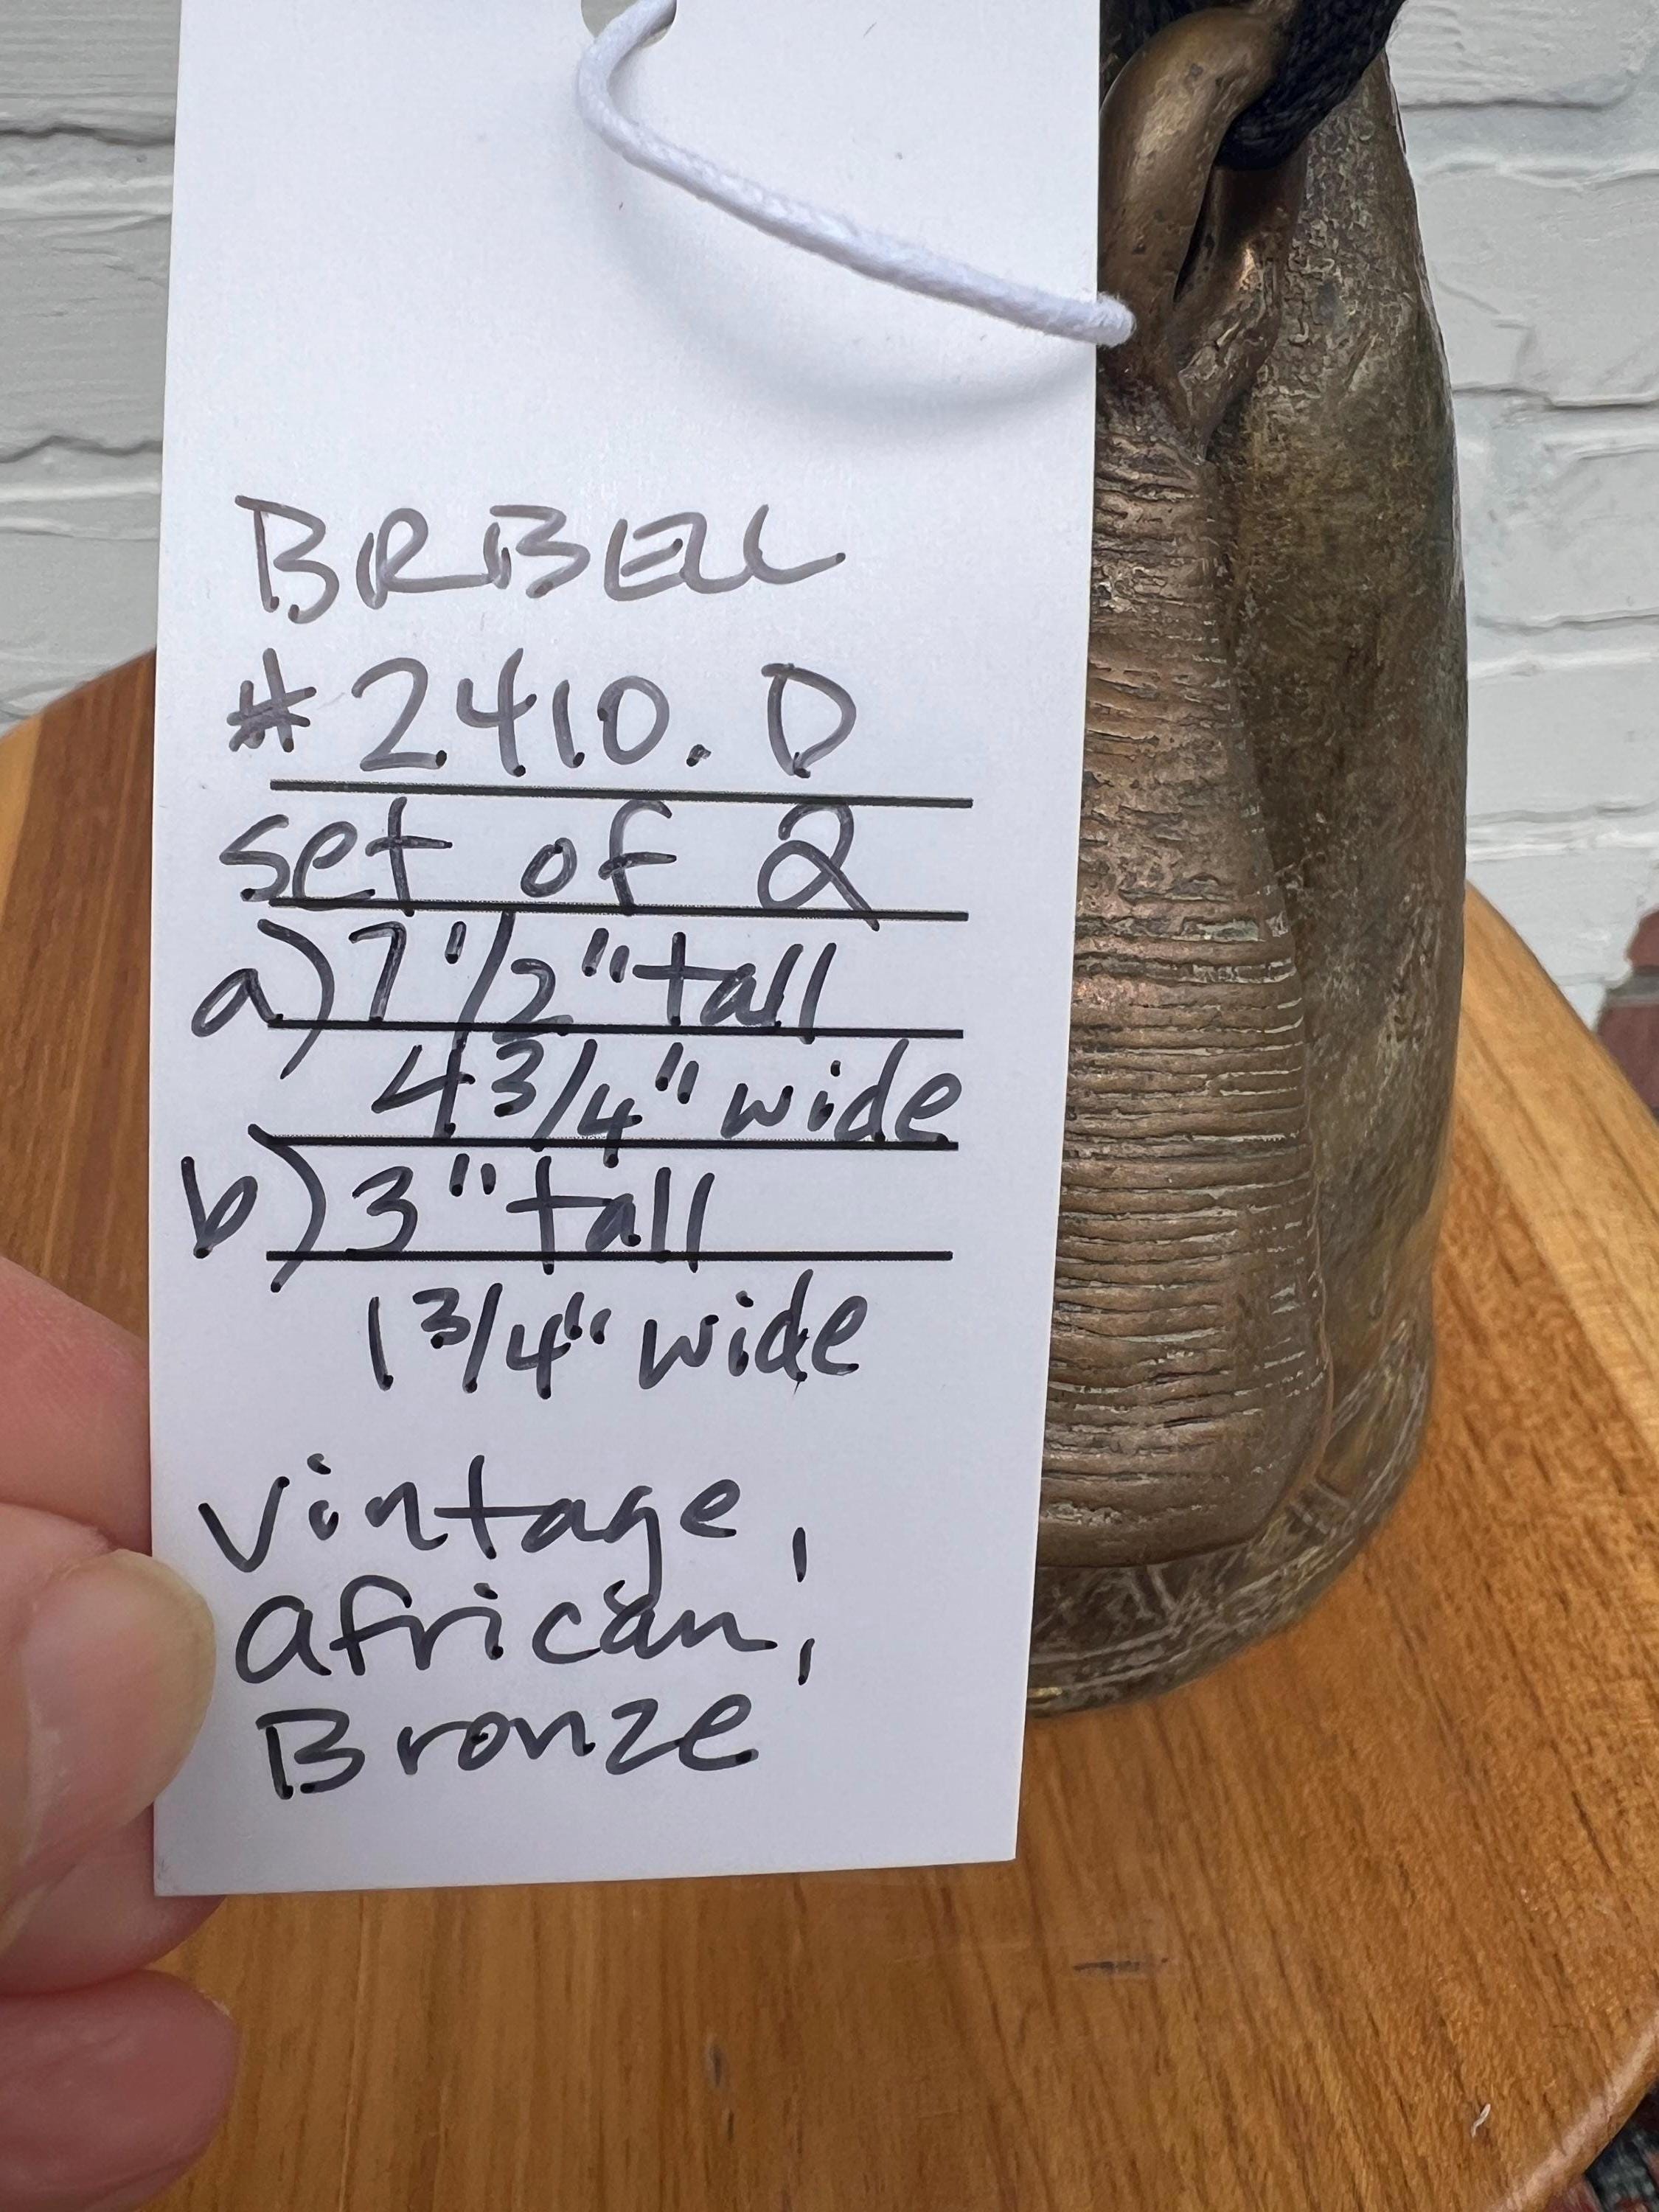 BRBELL
#2410.D
set of 2
a) 7 1/2" tall
4 3/4" wide
b) 3" tall
1 3/4" wide
vintage,
african,
Bronze